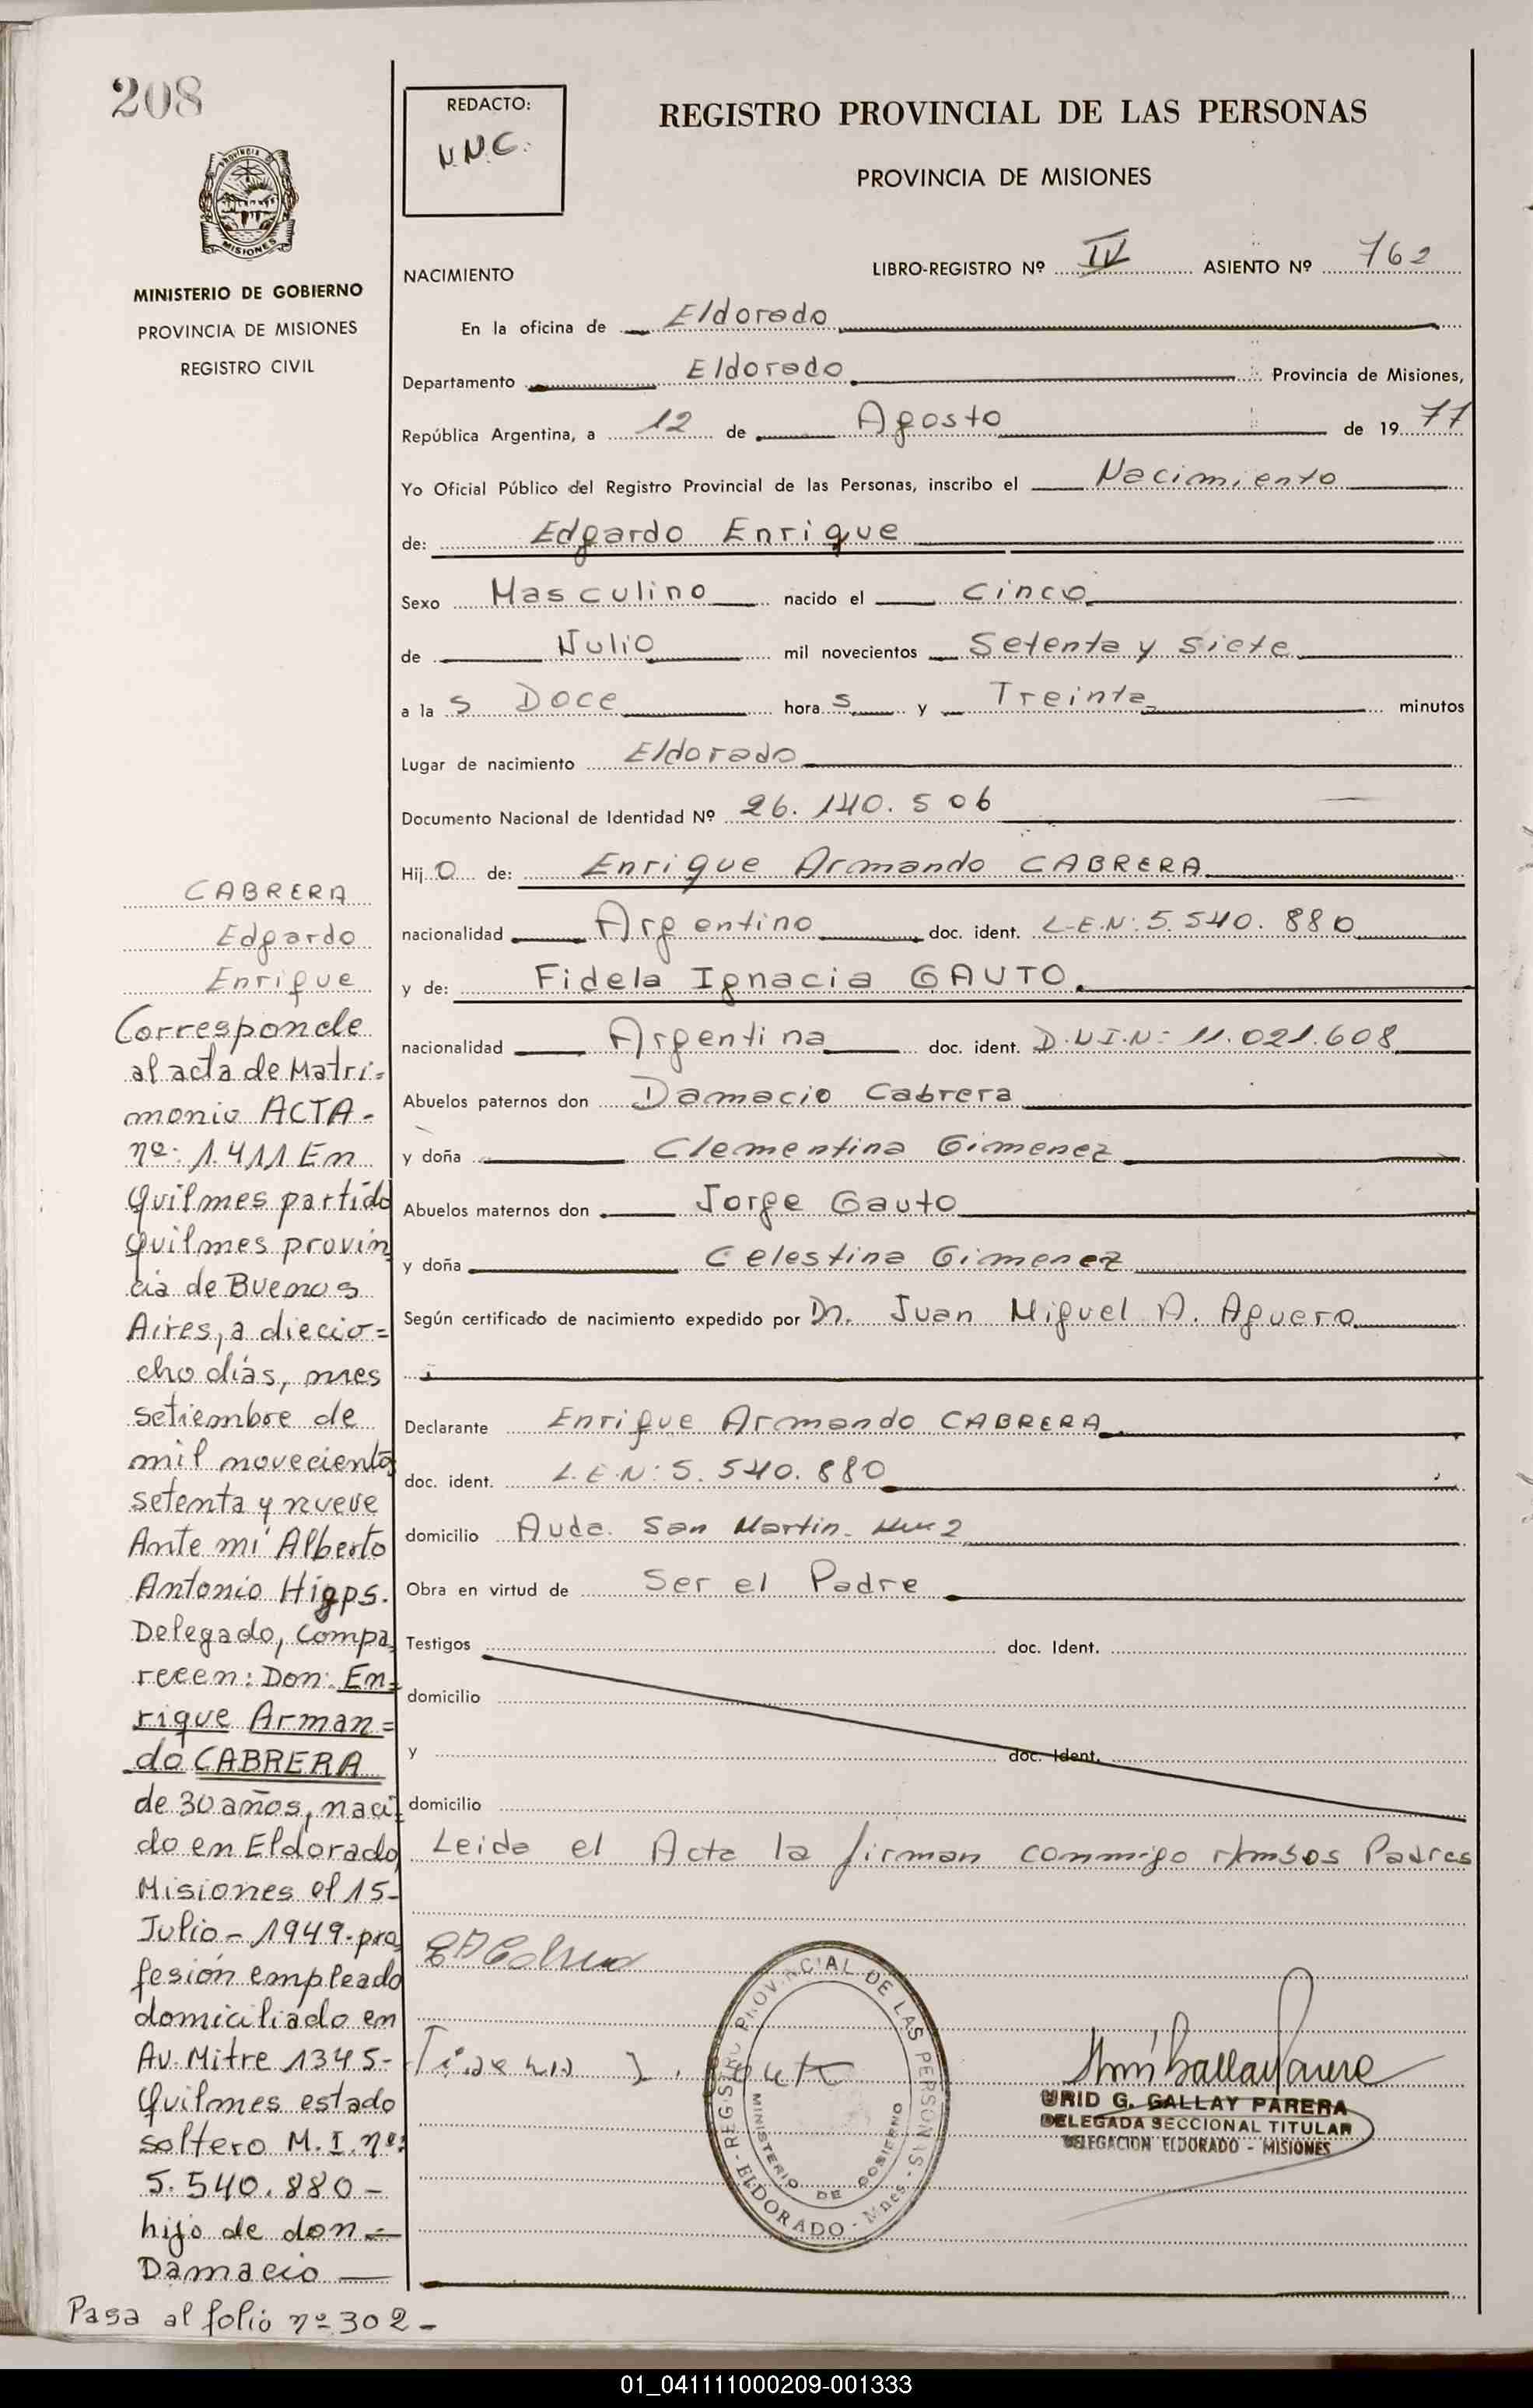 208
MINISTERIO DE GOBIERNO
PROVINCIA DE MISIONES
REGISTRO CIVIL
REDACTO:
N.N.C.
REGISTRO PROVINCIAL DE LAS PERSONAS
PROVINCIA DE MISIONES
NACIMIENTO LIBRO-REGISTRO Nº IV ASIENTO Nº 762
En la oficina de Eldorado
Departamento Eldorado Provincia de Misiones,
República Argentina, a 12 de Agosto de 1977
Yo Oficial Público del Registro Provincial de las Personas, inscribo el Nacimiento
de: Edgardo Enrique
Sexo Masculino nacido el Cinco
de Julio mil novecientos Setenta y Siete
a la s Doce hora s y Treinta minutos
Lugar de nacimiento Eldorado
Documento Nacional de Identidad Nº 26.140.506
Hij o de: Enrique Armando CABRERA
nacionalidad Argentino doc. ident. L.E.N: 5.540.880
y de: Fidela Ignacia GAUTO
nacionalidad Argentina doc. ident. D.N.I.N: 11.021.608
Abuelos paternos don Damacio Cabrera
y doña Clementina Gimenez
Abuelos maternos don Jorge Gauto
y doña Celestina Gimenez
Según certificado de nacimiento expedido por Dr. Juan Miguel A. Aguero
Declarante Enrique Armando CABRERA
doc. ident. L.E.N: 5.540.880
domicilio Avda. San Martin Km 2
Obra en virtud de Ser el Padre
Testigos doc. Ident.
domicilio
y doc. Ident.
domicilio
Leida el Acta la firman conmigo Padres
URID G. GALLAY PARERA
DELEGADA SECCIONAL TITULAR
DELEGACION ELDORADO - MISIONES
REGISTRO PROVINCIAL DE LAS PERSONAS - ELDORADO - Mnes.
MINISTERIO DE GOBIERNO
CABRERA
Edgardo
Enrique
Corresponde
al acta de Matri=
monio ACTA-
nº: 1.411 En
Quilmes partido
Quilmes provin
cia de Buenos
Aires, a diecio=
cho días, mes
setiembre de
mil novecientos
setenta y nueve
Ante mí Alberto
Antonio Higps.
Delegado, Compa
recen: Don: En=
rique Arman=
do CABRERA
de 30 años, naci
do en Eldorado
Misiones el 15-
Julio-1949-pro
fesión empleado
domiciliado en
Av. Mitre 1345-
Quilmes estado
soltero M.I.nº:
5.540.880-
hijo de don
Damacio
Pasa al folio nº 302-
01_041111000209-001333